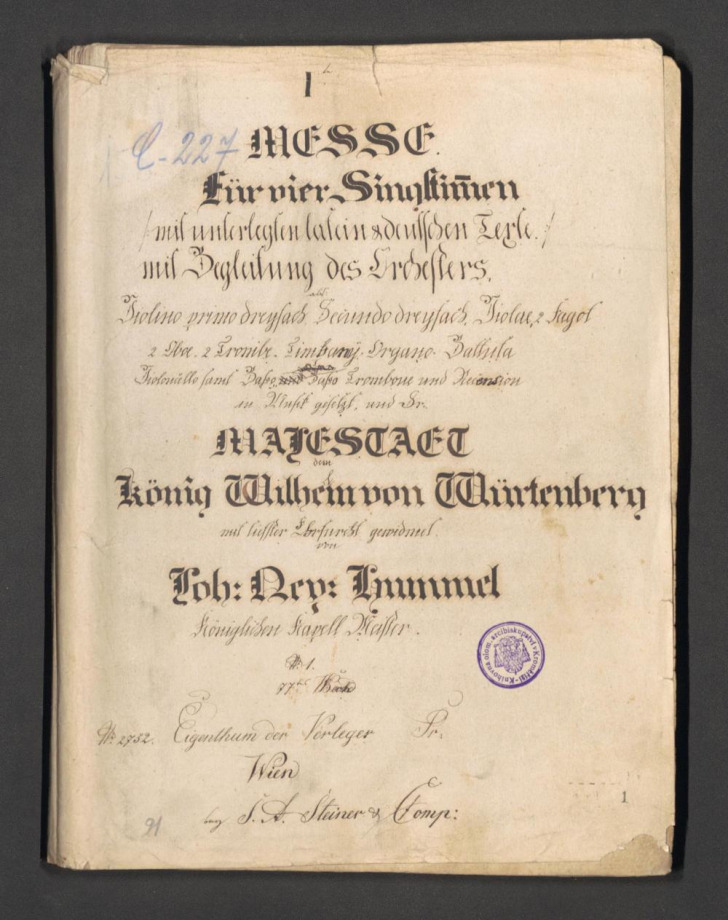 I
C-227
MESSE.
Für vier Singstim̅en
/ mit unterlegten latein & deutschen Texte. /
mit Begleitung des Orchesters,
als
Violino primo dreyfach, Secundo dreyfach, Violae, 2 Fagot
2 Oboe. 2 Trombe. Timpany. Organo.
Violoncello samt Basso Basso Trombone und
in Musik gesetzt, und Sr.
MAJESTAET
dem
König Wilhelm von Würtenberg
mit tiefster Ehrfurcht gewidmet.
von
Joh: Nep: Hummel
Königlichen Kapell Meister.
No 1.
77tes Werk
No 2752. Eigenthum der Verleger Pr.
Wien
bey S. A. Steiner & Comp:
Knihovna olom. arcibiskupství v Kroměříži
1
21